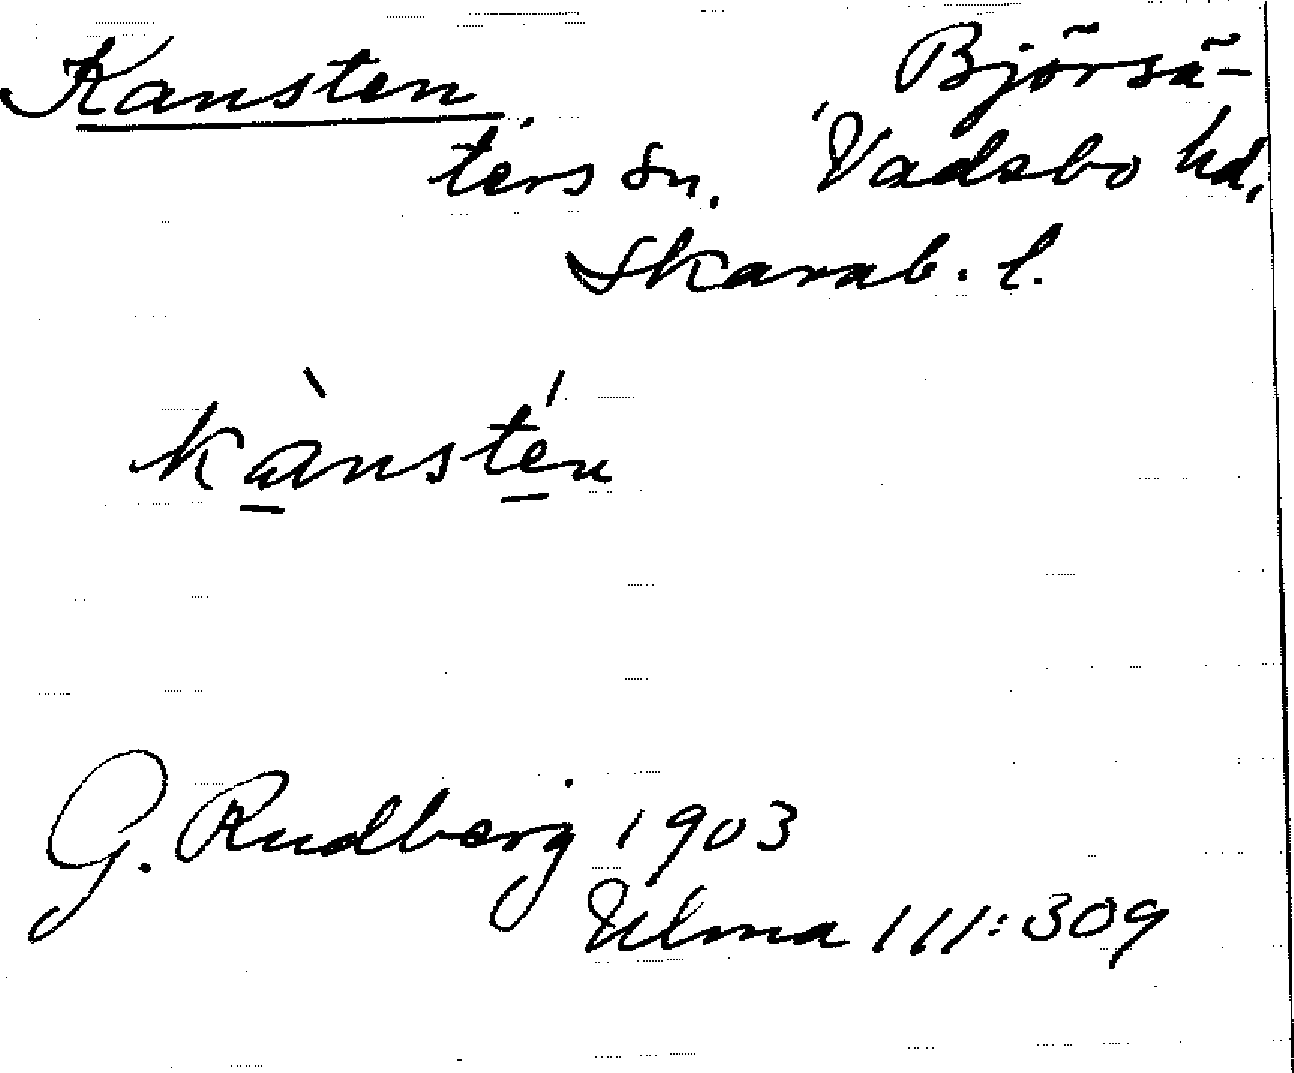 Kansten Björsä-
ters sn. Vadsbo hd,
Skarab. l.
kànstén
G. Rudberg 1903
Ulma 111:309